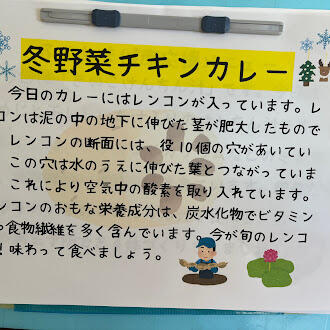 冬野菜チキンカレー
今日のカレーにはレンコンが入っています。レ
コンは泥の中の地下に伸びた茎が肥大したもので
レンコンの断面には、役10個の穴があいてい
この穴は水のうえに伸びた葉とつながっていま
これにより空気中の酸素を取り入れています。
ンコンのおもな栄養成分は、炭水化物でビタミン
食物繊維を多く含んでいます。今が旬のレンコ
味わって食べましょう。